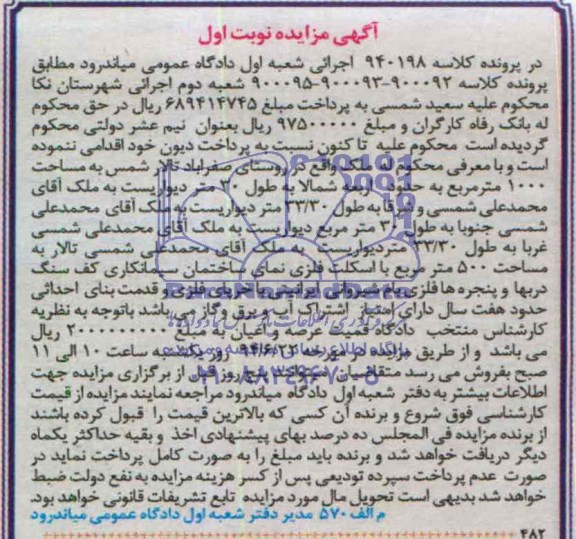 آگهی مزایده نوبت اول
در پرونده کلاسه ۹۴۰۱۹۸ اجرائی شعبه اول دادگاه عمومی میاندرود مطابق
پرونده کلاسه ۹۰۰۰۹۲-۹۰۰۰۹۳-۹۰۰۰۹۵ شعبه دوم اجرائی شهرستان نکا
محکوم علیه سعید شمسی به پرداخت مبلغ ۶۸۹۴۱۴۷۴۵ ریال در حق محکوم
له بانک رفاه کارگران و مبلغ ۹۷۵۰۰۰۰۰ ریال بعنوان نیم عشر دولتی محکوم
گردیده است محکوم علیه تا کنون نسبت به پرداخت دیون خود اقدامی ننموده
است و با معرفی محکوم له ملک واقع در روستای صفرآباد تالار شمس به مساحت
۱۰۰۰ مترمربع به حدود اربعه شمالا به طول ۳۰ متر دیواریست به ملک آقای
محمدعلی شمسی و شرقا به طول ۳۳/۳۰ متر دیواریست به ملک آقای محمدعلی
شمسی جنوبا به طول ۳۰ متر مربع دیواریست به ملک آقای محمدعلی شمسی
غربا به طول ۳۳/۳۰ متردیواریست به ملک آقای محمدعلی شمسی تالار به
مساحت ۵۰۰ متر مربع با اسکلت فلزی نمای ساختمان سیمانکاری کف سنگ
دربها و پنجره ها فلزی بام شیروانی ایرانیتی با خرپای فلزی و قدمت بنای احداثی
حدود هفت سال دارای امتیاز اشتراک آب و برق وگاز می باشد باتوجه به نظریه
کارشناس منتخب دادگاه قیمت عرصه و اعیان به مبلغ ریال
می باشد و از طریق مزایده در مورخه ۹۴/۶/۲۲ روز یکشنبه ساعت ۱۰ الی ۱۱
صبح بفروش می رسد متقاضیان روز قبل از برگزاری مزایده جهت
اطلاعات بیشتر به دفتر شعبه اول دادگاه میاندرود مراجعه نمایند مزایده از قیمت
کارشناسی فوق شروع و برنده آن کسی که بالاترین قیمت را قبول کرده باشند
از برنده مزایده فی المجلس ده درصد بهای پیشنهادی اخذ و بقیه حداکثر یکماه
دیگر دریافت خواهد شد و برنده باید مبلغ را به صورت کامل پرداخت نماید در
صورت عدم پرداخت سپرده تودیعی پس از کسر هزینه مزایده به نفع دولت ضبط
خواهد شد بدیهی است تحویل مال مورد مزایده تابع تشریفات قانونی خواهد بود.
م الف ۵۷۰ مدیر دفتر شعبه اول دادگاه عمومی میاندرود
۴۸۲